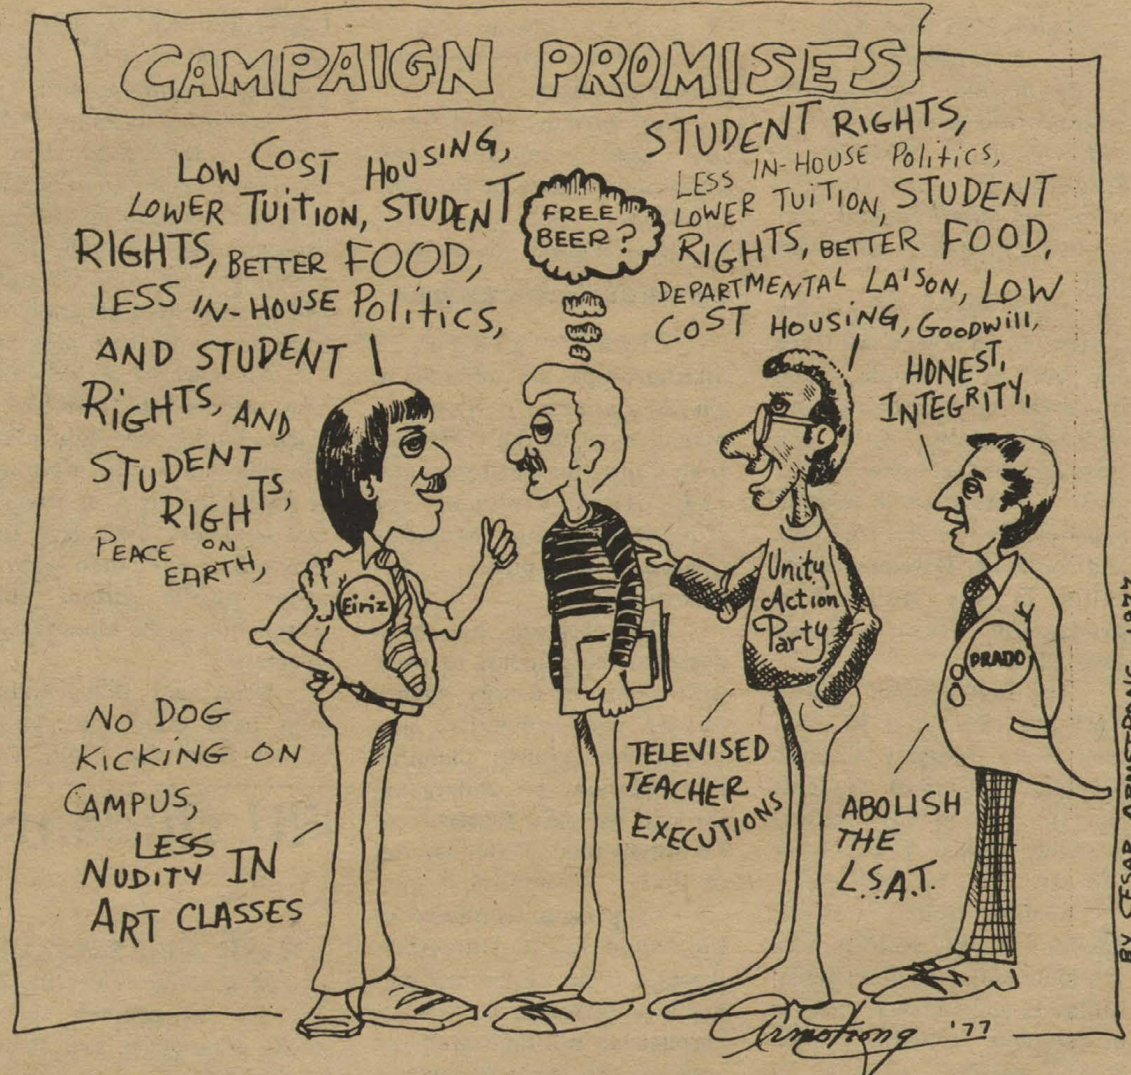 CAMPAIGN PROMISES
LOW COST HOUSING,
LOWER TUITION, STUDENT
RIGHTS, BETTER FOOD,
LESS IN-HOUSE POLITICS,
AND STUDENT
RIGHTS, AND
STUDENT
RIGHTS,
PEACE ON
EARTH,
FREE
BEER?
STUDENT RIGHTS,
LESS IN-HOUSE POLITICS,
LOWER TUITION, STUDENT
RIGHTS, BETTER FOOD,
DEPARTMENTAL LAISON, LOW
COST HOUSING, GOODWILL,
HONEST,
INTEGRITY,
Eiriz
Unity
Action
Party
PRADO
NO DOG
KICKING ON
CAMPUS,
LESS
NUDITY IN
ART CLASSES
TELEVISED
TEACHER
EXECUTIONS
ABOLISH
THE
L.S.A.T.
Armstrong '77
BY CESAR ARMSTRONG 1977